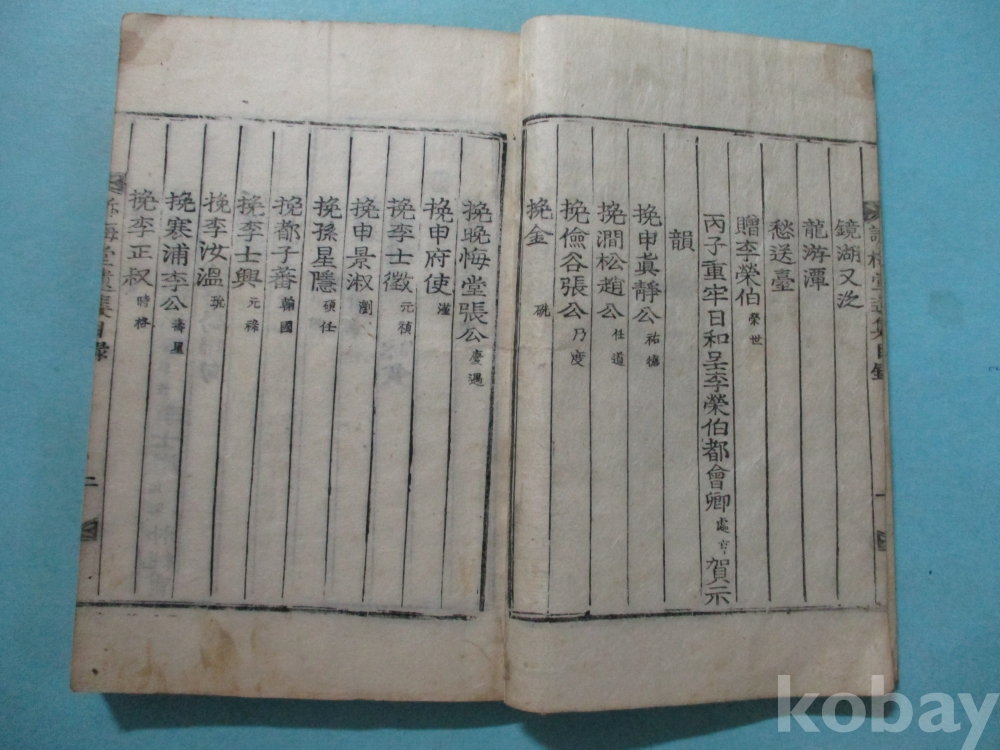 鏡湖又泛
龍游潭
愁送臺
贈李榮伯 榮世
丙子重牢日和呈李榮伯都會卿 處亨 賀示
韻
挽申眞靜公 祐德
挽澗松趙公 任道
挽儉谷張公 乃度
挽金 硡
挽晩悔堂張公 慶遇
挽申府使
挽李士徵 元禎
挽申景淑 瀏
挽孫星隱 碩任
挽都子蕃 翰國
挽李士興 元祿
挽李汝溫
挽寒浦李公 壽星
挽李正叔 時格
梅堂遺集目錄
二
kobay